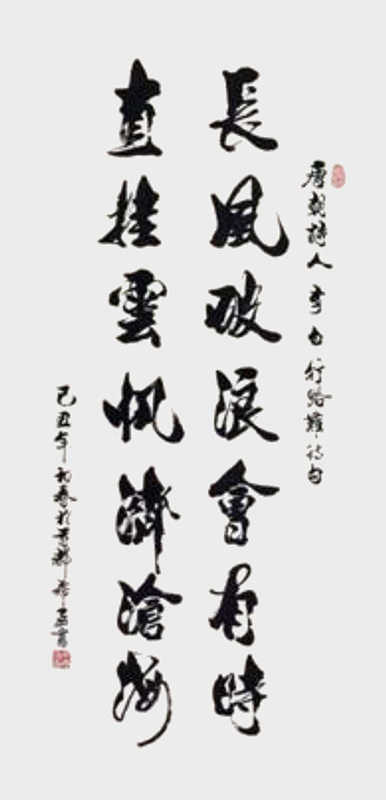 唐朝詩人李白行路難詩句
長風破浪會有時
直挂雲帆濟滄海
己丑年初春於京都